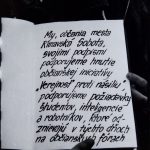 My, občania mesta
Rimavská Sobota,
svojimi podpismi
podporujeme hnutie
občianskej iniciatívy
„Verejnosť proti násiliu"
podporujeme požiadavky
študentov, inteligencie
a robotníkov, ktoré od-
znievajú v týchto dňoch
na občianskych fórach